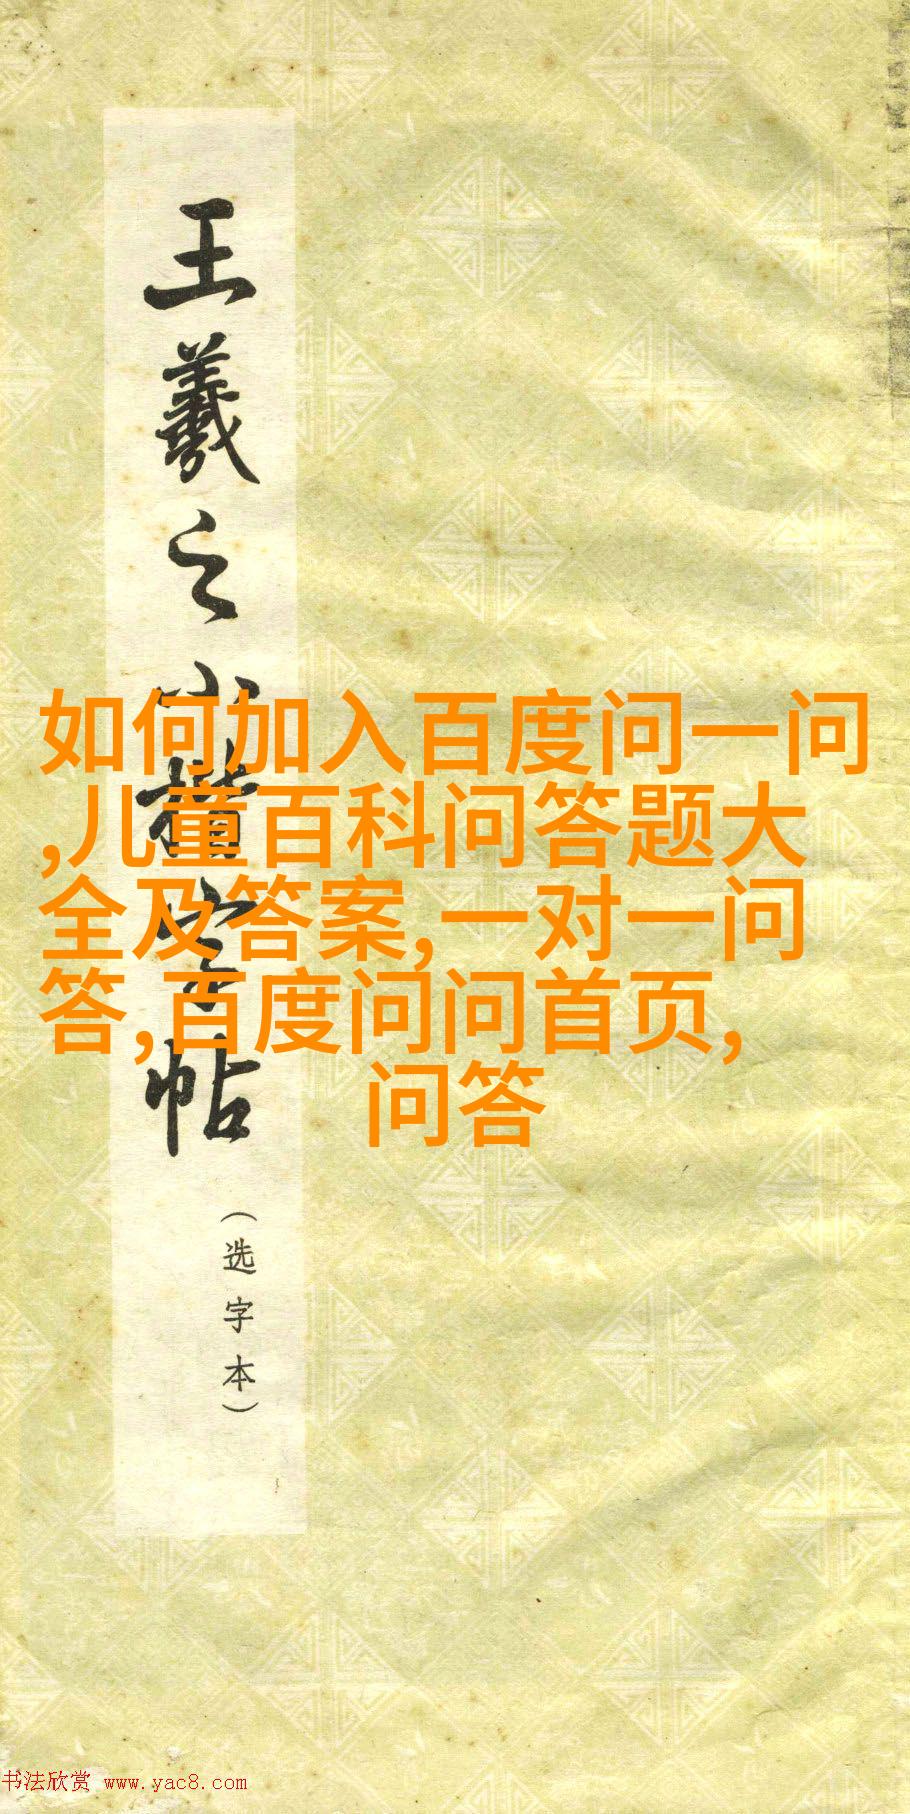 王羲之小楷字帖
(选字本)
如何加入百度问一问
,儿童百科问答题大
全及答案,一对一问
答,百度问问首页,
问答
书法欣赏 www.yac8.com